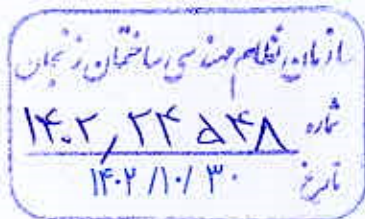 سازمان نظام مهندسی ساختمان زنجان
شماره ۱۴۰۲,۲۴۵۴۸
تاریخ ۱۴۰۲/۱۰/۳۰